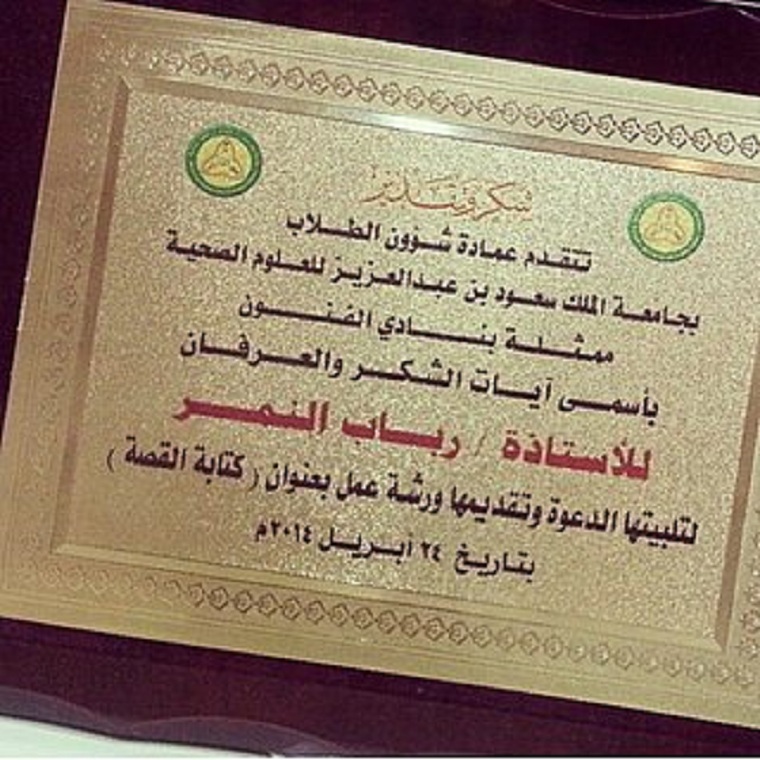 شكر وتقدير
تتقدم عمادة شؤون الطلاب
بجامعة الملك سعود بن عبدالعزيز للعلوم الصحية
ممثلة بنادي الفنون
بأسمى آيات الشكر والعرفان
للأستاذة / رباب النمر
لتلبيتها الدعوة وتقديمها ورشة عمل بعنوان ( كتابة القصة )
بتاريخ ٢٤ أبريل ٢٠١٤م